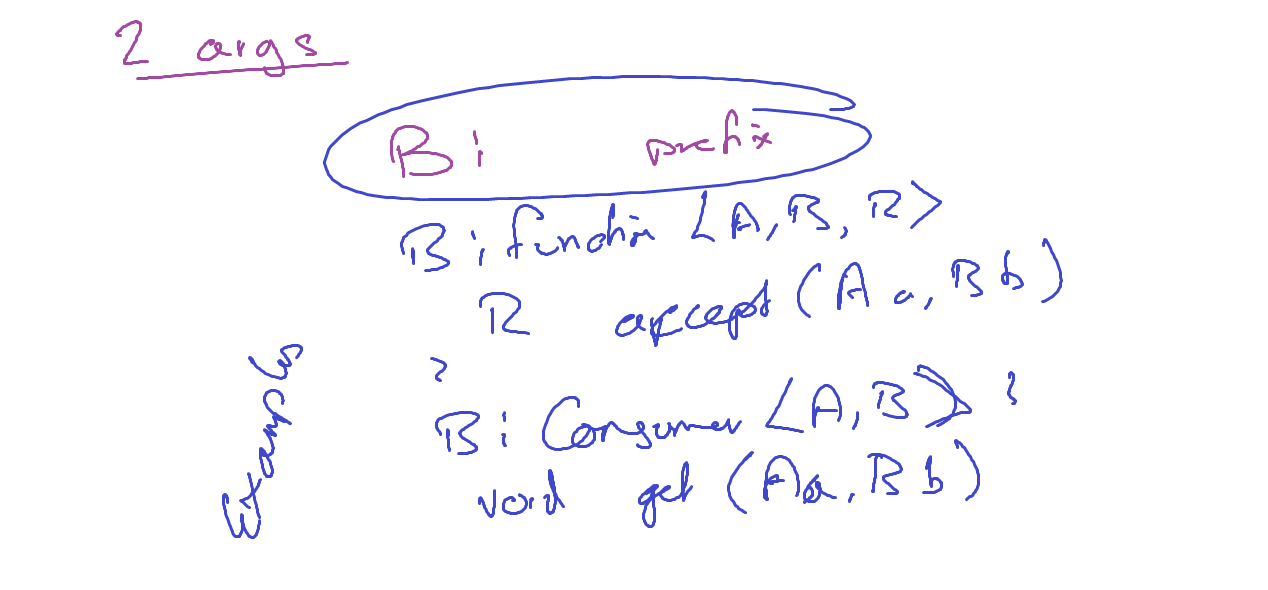 2 args
Bi prefix
Bifunction <A, B, R>
R accept (A a, B b)
}
Bi Consumer <A, B> {
void get (A a, B b)
Examples